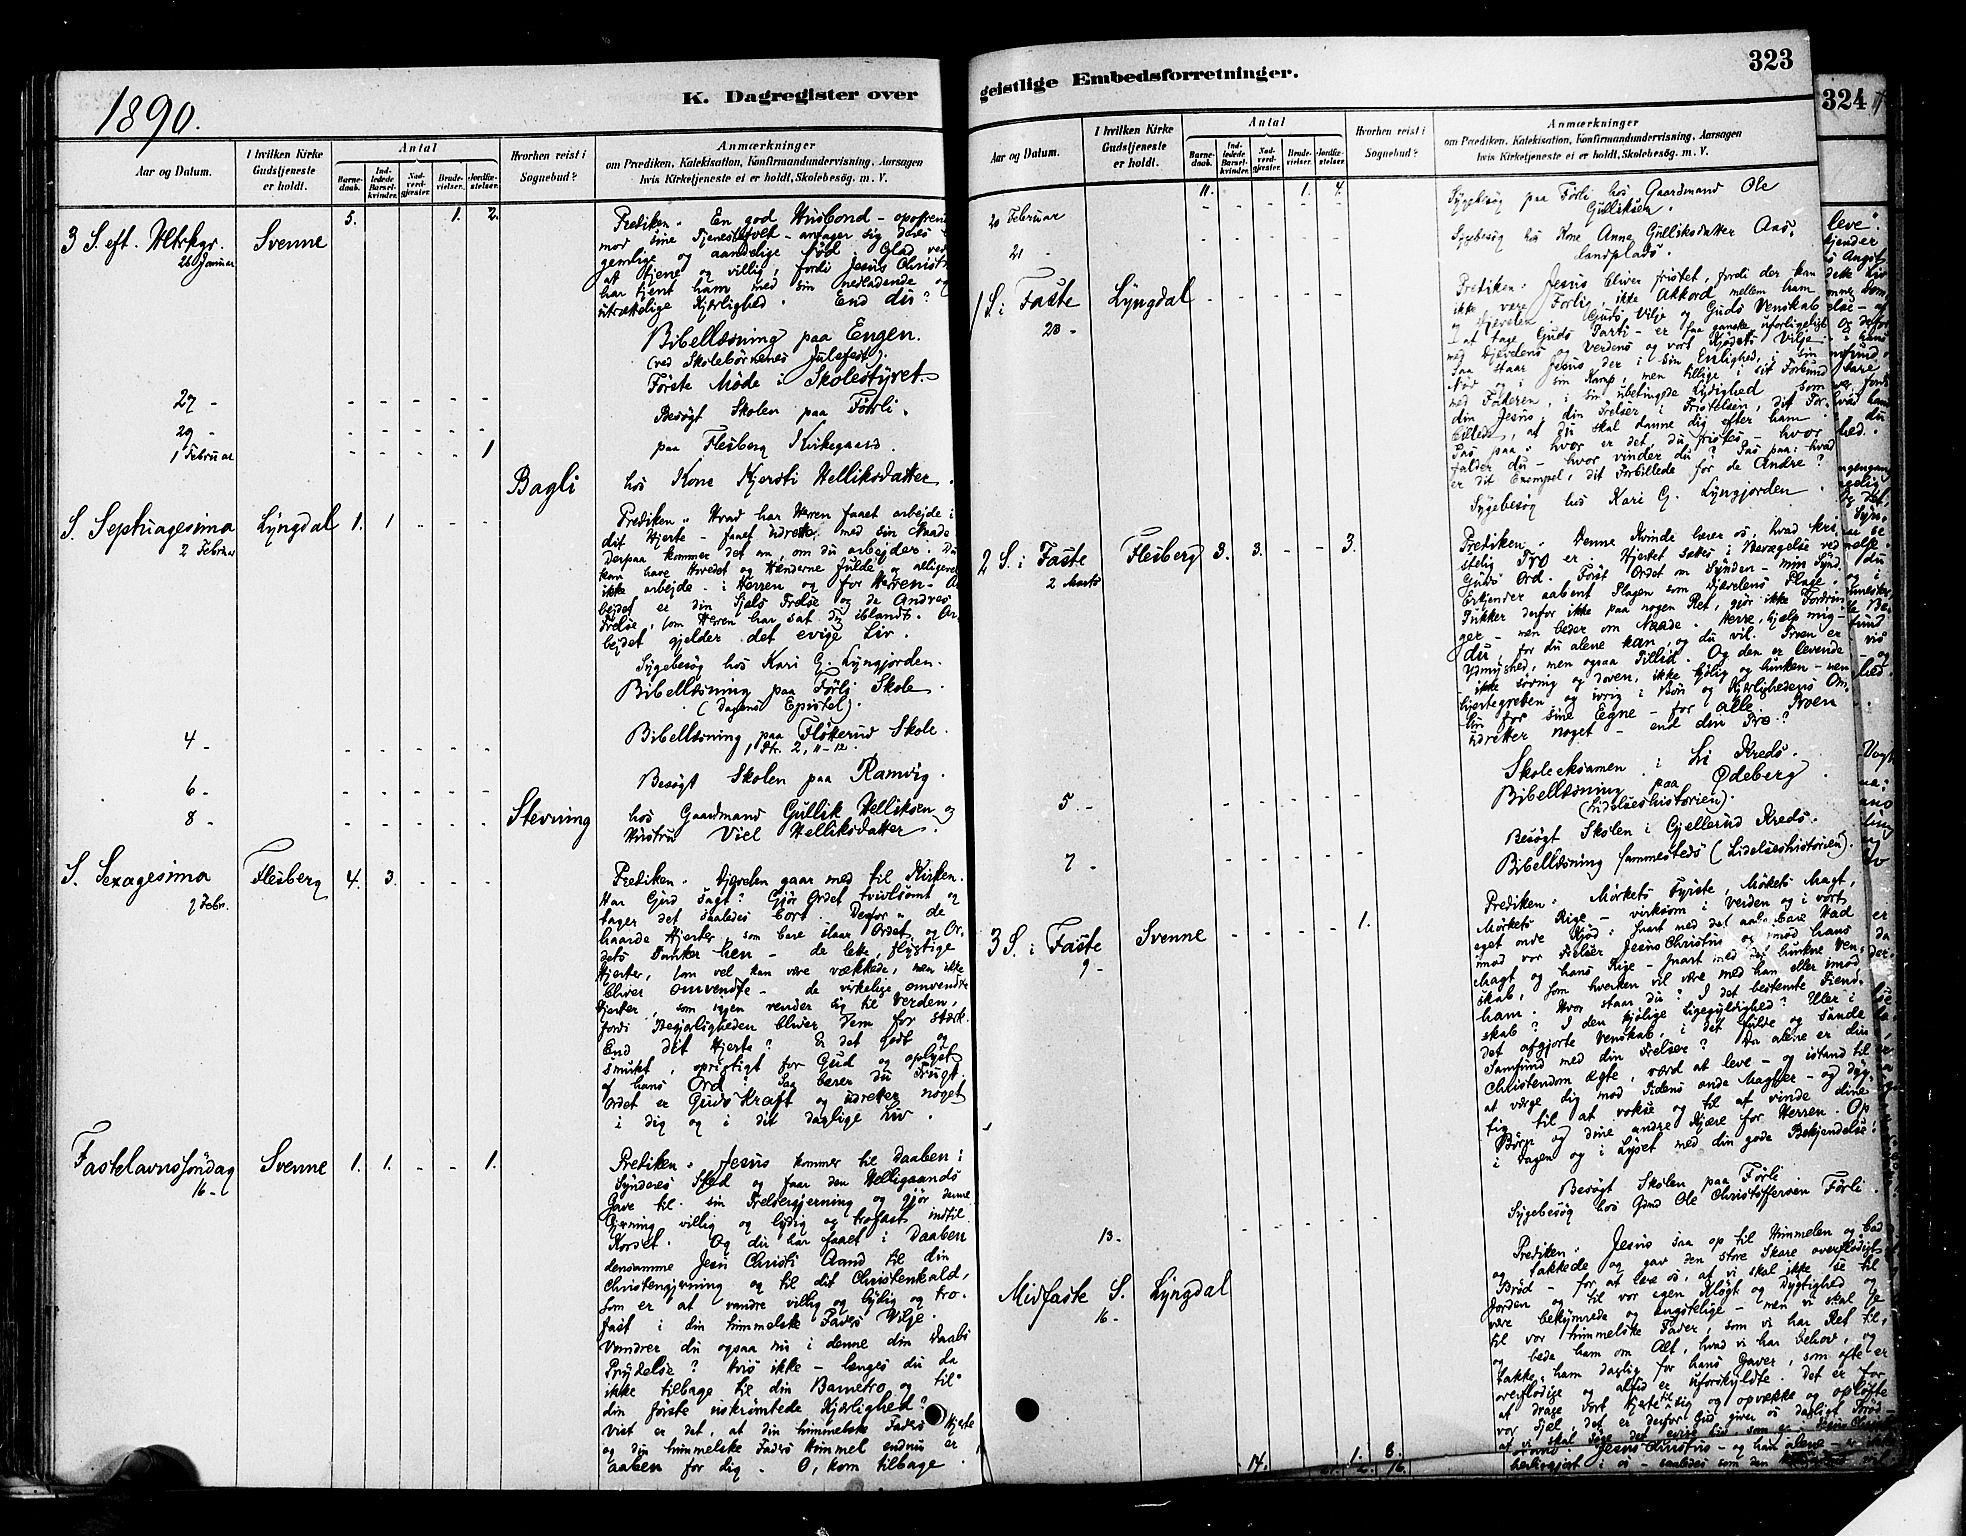 1890.
K. Dagregister over
Aar og Datum.
I hvilken Kirke
Gudstjeneste
er holdt.
Antal
Barne-
daab.
Ind-
ledede
Barsel-
kvinder.
Nad-
verd-
gjester.
Brude-
vielser.
Jordfæ-
stelser.
Hvorhen reist i
Sognebud?
Anmærkninger
om Prædiken, Katekisation, Konfirmandundervisning, Aarsagen
hvis Kirketjeneste ei er holdt, Skolebesög. m. V.
5. 1. 2.
3 S. eft. Htrkgr. Svenne
26 Januar
Prediken. En god Husbond - opofrende
mod sine Tjenestefolk - antager sig deres
gemlige og aandelige Nød. Glad ved
at tjene og villig, fordi Jesus Christus
har tjent ham med sin nedladende og
utrættelige Kjærlighed. End du?
Bibellæsning paa Engen.
(ved Skolebørnenes Julefest).
Første Møde i Skolestyret.
27 - Besøgt Skolen paa Førli.
29 -
1 Februar 1 paa Flesberg Kirkegaard.
Bagli hos Kone Kjersti Helliksdatter.
S. Septuagesima Lyngdal 1. 1
2 Februar
Prediken. Hvad har Herren faaet arbejde i
dit Hjerte - faaet udrettet med sin Naade.
Derpaa kommer det an, om du arbejder. Du
kan have Hovedet og Hænderne fulde og alligevel
ikke arbejde i Herren og for Herren. Ar-
bejdet er din Sjæls Frelse og de Andres
Frelse, som Herren har sat du iblandt. Ar-
bejdet gjelder det evige Liv.
Sygebesøg hos Kari G. Lyngjorden.
Bibellæsning paa Førli Skole.
(Dagens Epistel).
4 - Bibellæsning paa Fløkerud Skole.
2, 11-12.
6 - Besøgt Skolen paa Ramvig.
8 - Stevning hos Gaardmand Gullik Helliksen og
Hustru Viel Helliksdatter.
S. Sexagesima Flesberg 4. 3.
9 Febr.
Prediken. Djævelen gaar med til Kirken.
Har Gud sagt? Gjør Ordet tvivlsomt og
tager det saaledes bort. Derfor de
haarde Hjerter, som bare slaar Ordet og Or-
dets Tanker hen - de lette, flygtige
Hjerter, som vel kan være vækkede, men ikke
bliver omvendte - de virkelige omvendte
Hjerter, som igjen vender sig til Verden,
fordi Begjærligheden bliver dem for stærk.
End dit Hjerte? Er det godt og
smukt, oprigtigt for Gud og oplyst
af hans Ord? Saa bærer du Frugt.
Ordet er Guds Kraft og udretter noget
i dig og i dit daglige Liv.
Fastelavnssøndag Svenne 1. 1. 1.
16 -
Prediken. Jesus kommer til Daaben i
Synderes Sted og faar den Helligaands
Gave til sin Frelsergjerning og gjør denne
Gjerning villig og lydig og trofast indtil
Korset. Og du har faaet i Daaben
densamme Jesu Christi Aand til din
Christengjerning og til dit Christenkald,
som er at vandre villig og lydig og tro-
fast i din himmelske Faders Vilje.
Vandrer du ogsaa nu i denne din Daabs
Prydelse? Hvis ikke - længes du da
ikke tilbage til din Barnetro og til
din første uskrømtede Kjærlighed?
Vist er det, at din himmelske Faders Hjerte
og din himmelske Faders Himmel endnu er
aaben for dig. O, kom tilbage
geistlige Embedsforretninger.
323
Aar og Datum.
I hvilken Kirke
Gudstjeneste
er holdt.
Antal
Barne-
daab.
Ind-
ledede
Barsel-
kvinder.
Nad-
verd-
gjester.
Brude-
vielser.
Jordfæ-
stelser.
Hvorhen reist i
Sognebud?
Anmærkninger
om Prædiken, Katekisation, Konfirmandundervisning, Aarsagen
hvis Kirketjeneste ei er holdt, Skolebesög. m. V.
11. 1. 4.
20 Februar Sygebesøg paa Førli hos Gaardmand Ole
Gulliksen.
21 - Sygebesøg hos Kone Anne Gulliksdatter Aas-
landplads.
1 S. i Faste Lyngdal
23 -
Prediken. Jesus bliver fristet, fordi der kan
ikke være Forlig, ikke Akkord mellem ham
og Djævelen. Guds Vilje og Guds Venskab
- at tage Guds Parti - er saa ganske uforligeligt
med Djævelens og Verdens og vort Kjøds Vilje.
Saa staar Jesus der i sin Enlighed, i sin
Nød og i sin Kamp, men tillige i sit Forbund
med Faderen, i sin ubetingede Lydighed som
din Jesus, din Frelser i Fristelsen, dit For-
billede, at du skal danne dig efter ham.
Pas paa: hvor er det, du fristes - hvor
falder du - hvor vinder du? Pas paa: hvad
er dit Exempel, dit Forbillede for de Andre?
Sygebesøg hos Kari G. Lyngjorden.
2 S. i Faste Flesberg 3. 3. 3.
2 Marts
Prediken. Denne Kvinde lærer os, hvad kri-
stelig Tro er. Hjertet sættes i Bevægelse ved
Guds Ord. Først Ordet om Synden - min Synd.
Erkjender aabent Plagen som Djævelens Plage.
Pukker derfor ikke paa nogen Ret, gjør ikke Fordrin-
ger - men beder om Naade. Herre, hjælp mig -
du, for du alene kan, og du vil. Troen er
Ydmyghed, men ogsaa Tillid. Og den er levende
- ikke søvnig og doven, ikke kjølig og lunken - men
hjertegreben og ivrig i Bøn og Kjærlighedens Om-
sorg for sine Egne - for alle. Troen
udretter noget - end din Tro?
Skoleeksamen i Li Kreds.
5 - Bibellæsning paa Ødeberg.
(Lidelseshistorien).
Besøgt Skolen i Gjellerud Kreds.
7 - Bibellæsning sammesteds (Lidelseshistorien).
3 S. i Faste Svenne 1.
9 -
Prediken. Mørkets Fyrste, Mørkets Magt,
Mørkets Rige - virksom i Verden og i vort
eget onde Kjød: snart med det aabenbare Had
imod vor Frelser Jesus Christus og imod hans
Magt og hans Rige - snart med det lunkne Ven-
skab, som hverken vil være med ham eller imod
ham. Hvor staar du? I det bestemte Fiend-
skab? I den kjølige Ligegyldighed? Eller i
det afgjorte Venskab, i det fulde og sande
Samfund med din Frelser? Da alene er din
Christendom ægte, værd at leve - og istand til
at værge dig mod Tidens onde Magter - og dyg-
tig til at vokse og til at vinde dine
Børn og dine andre Kjære for Herren. Op
i Dagen og i Lyset med din gode Bekjendelse!
Besøgt Skolen paa Førli
13 - Sygebesøg hos Gmd Ole Christoffersen Førli.
Midfaste S. Lyngdal
16 -
Prediken. Jesus saa op til Himmelen og bad
og takkede og gav den store Skare overflødigt
Brød - for at lære os, at vi skal ikke se til
Jorden og til vor egen Kløgt og Dygtighed og
være bekymrede og ængstelige - men vi skal se
til vor himmelske Fader, som vi har Ret til,
og bede ham om Alt, hvad vi har behov, og
takke ham daglig for hans Gaver, som ofte er
overflødige og altid er uforskyldte. Det er for
at drage vort Hjerte til sig og opvække og opløfte
vor Sjæl, det er derfor Gud giver os dagligt Brød -
at vi skal søge det evige Liv
Jesus Christus - og ham alene -
14. 1. 8.
16.
324